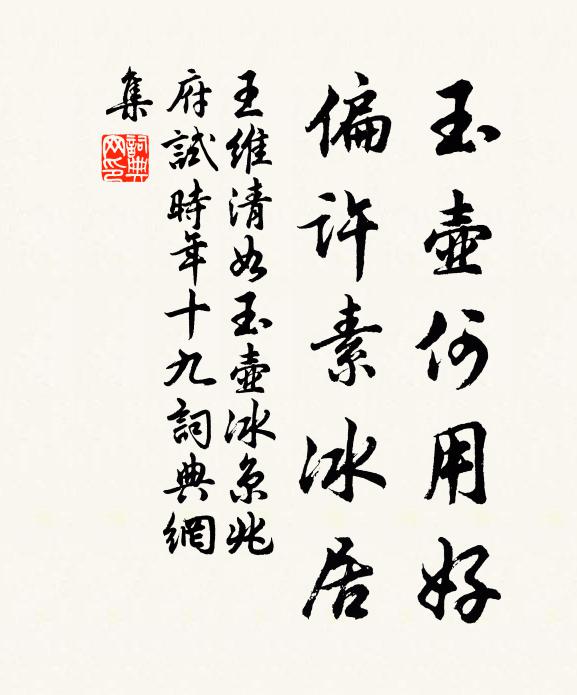 玉壺何用好
偏許素冰居
王維清如玉壺冰京兆
府試時年十九詞典網
集
詞典
网印